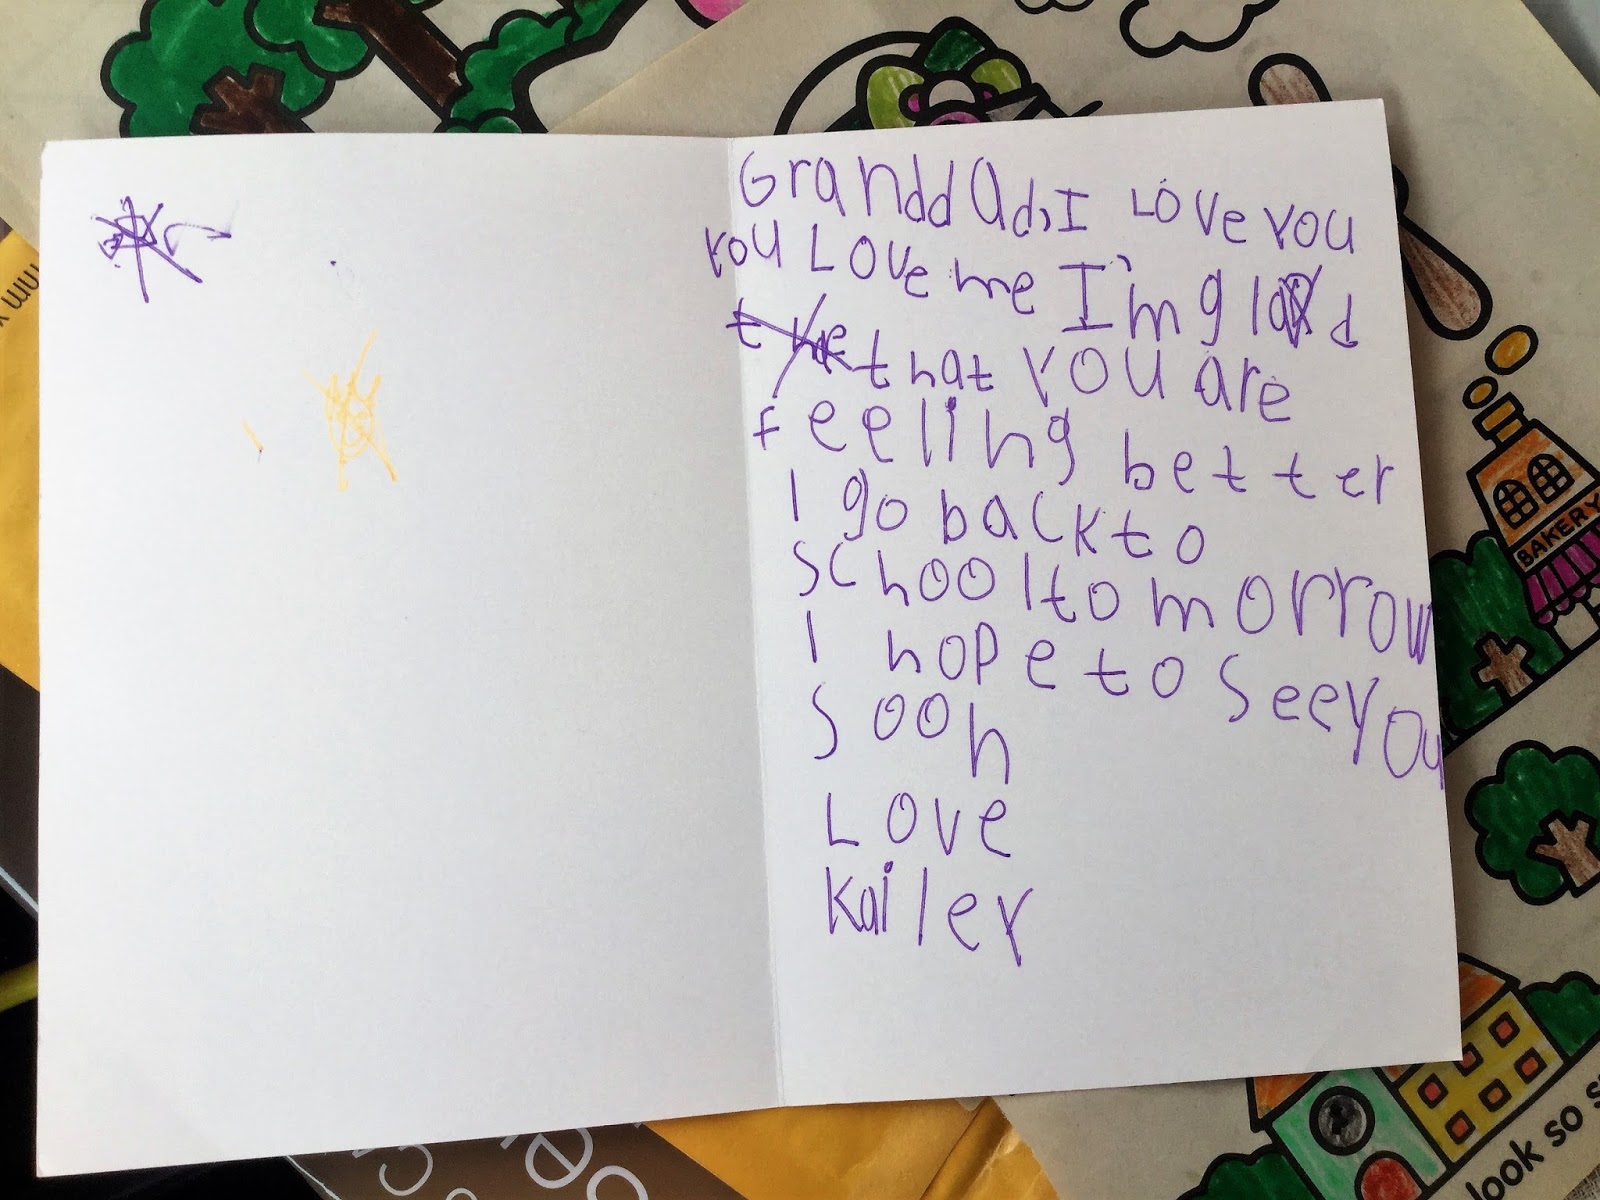 Granddad, I Love you
you Love me I'm glad
the that you are
Feeling better
I go back to
school tomorrow
I hope to see you
soon
Love
Kailer
BAKERY
look so s